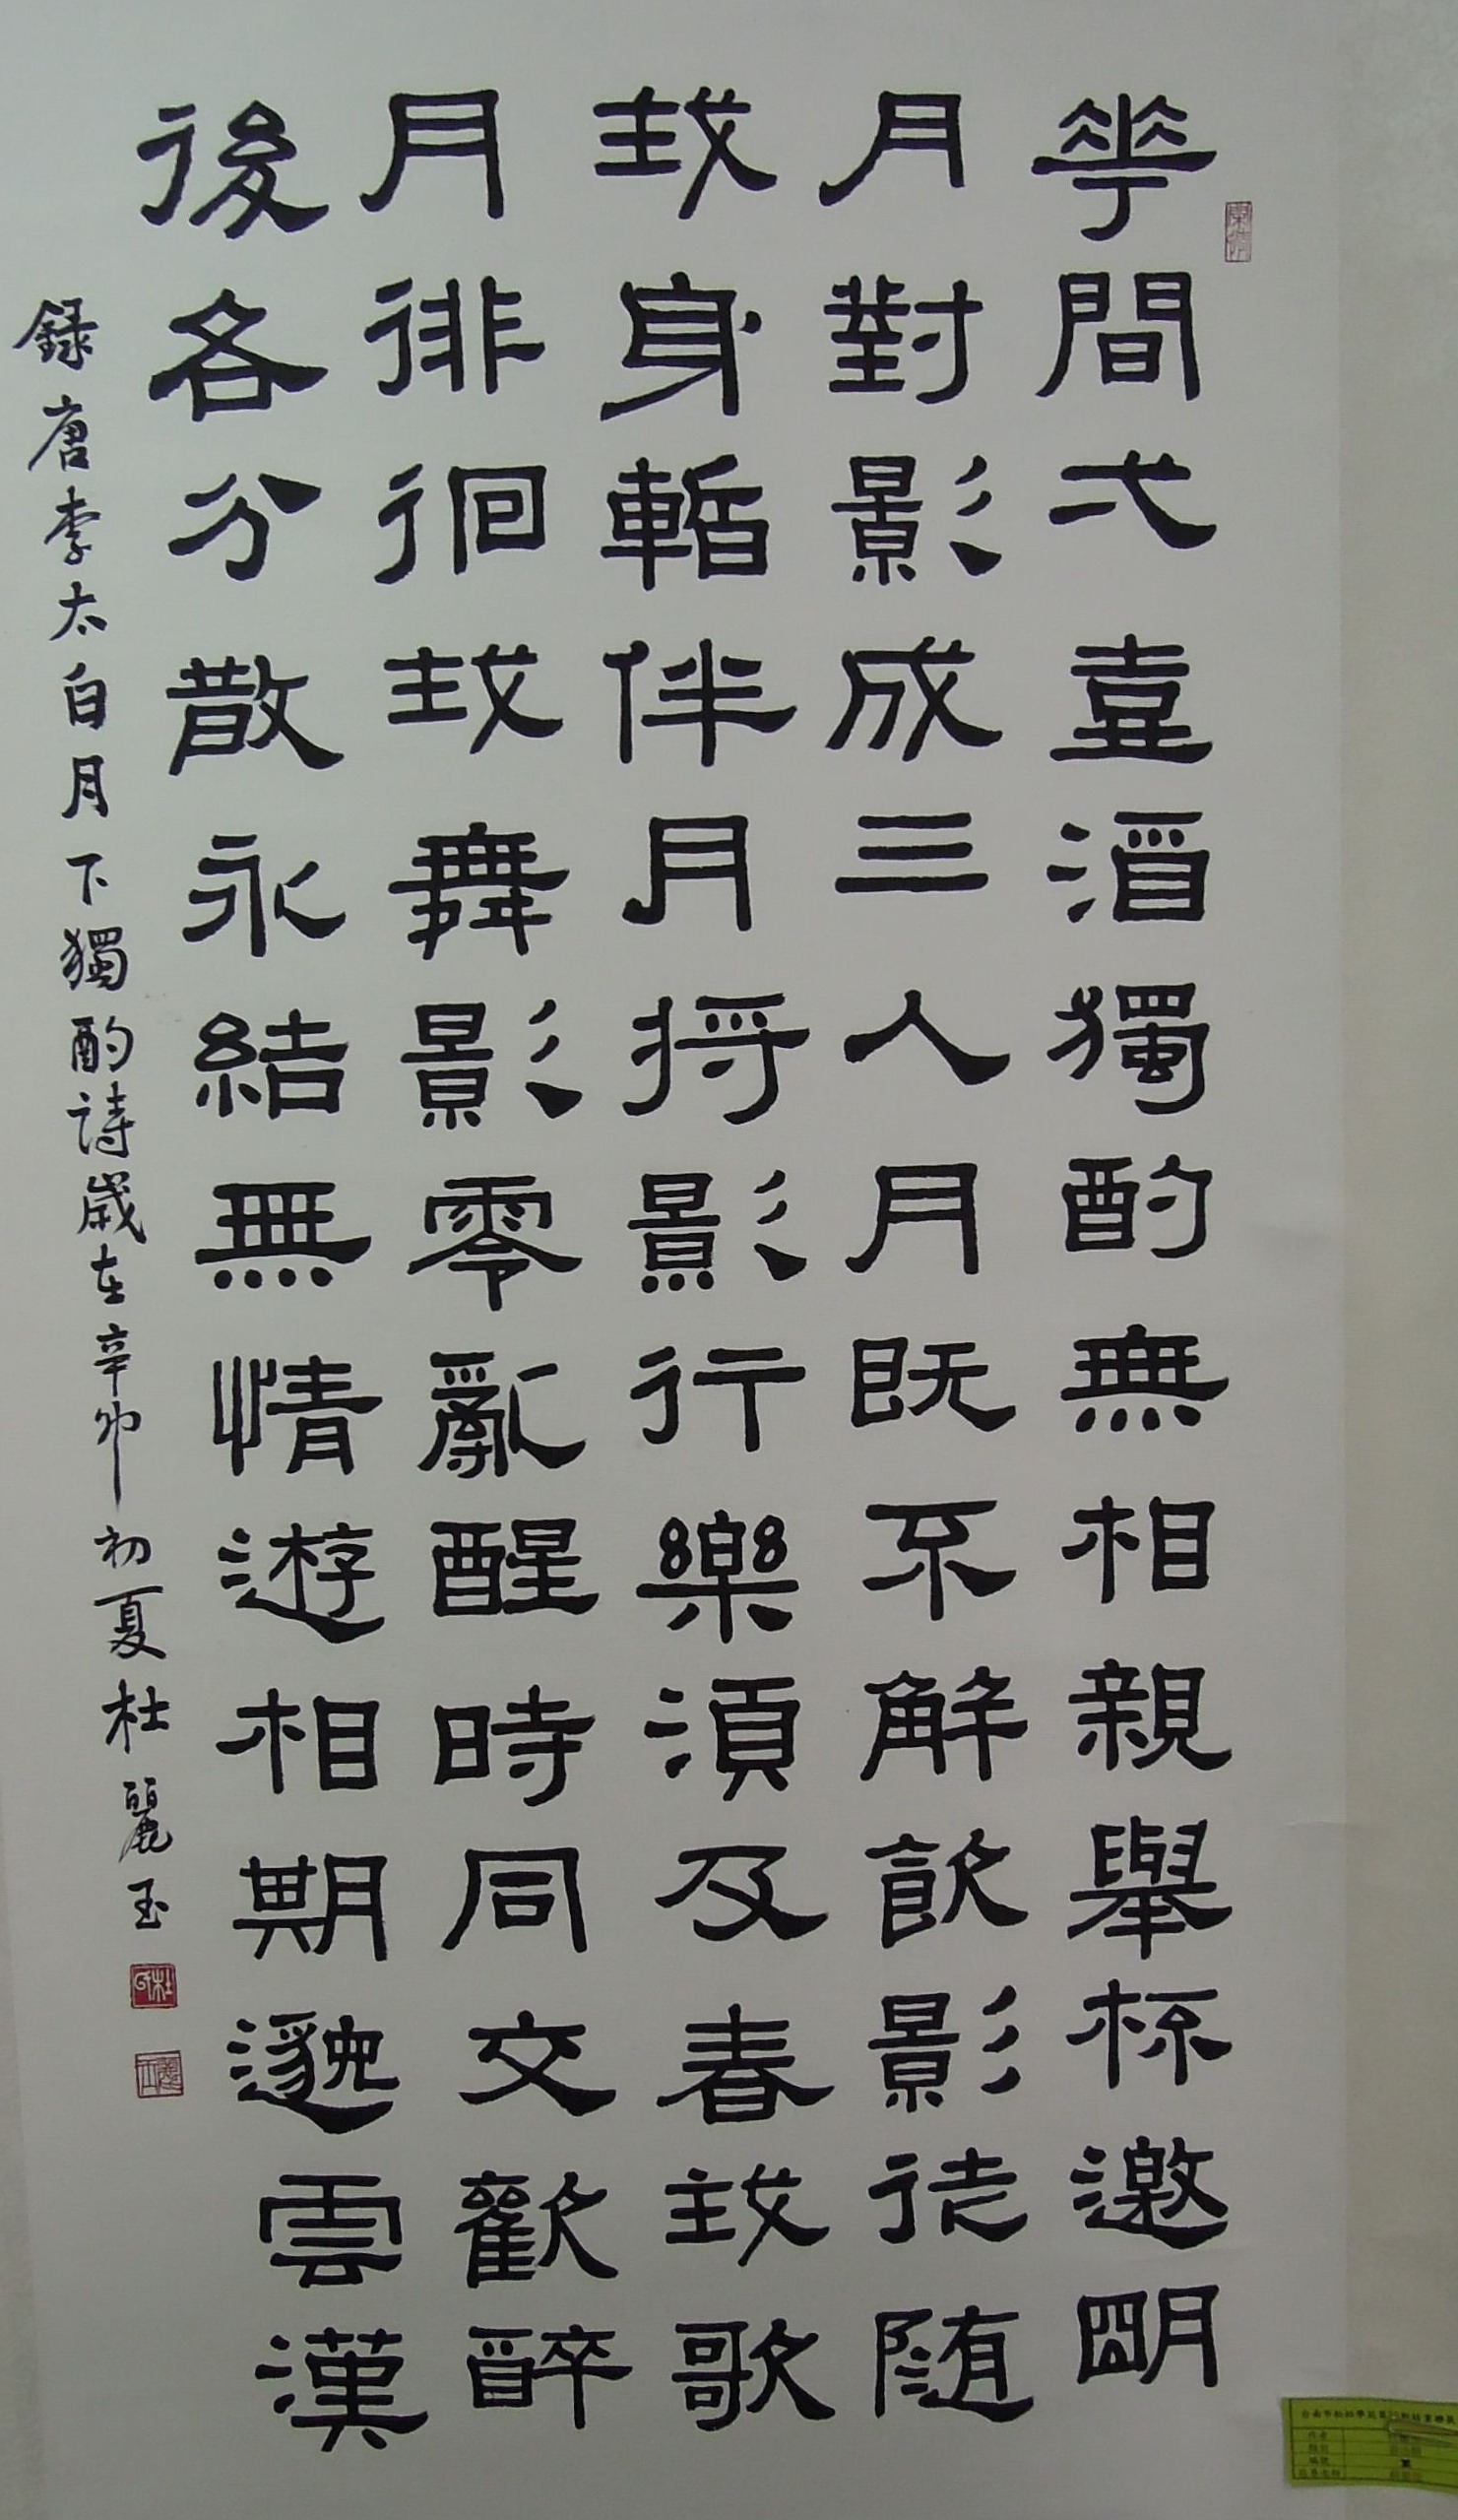 花間弌壺酒獨酌無相親舉杯邀明
月對影成三人月既不解飲影徒随
我身暫伴月将影行樂須及春我歌
月徘徊我舞影零亂醒時同交歡醉
後各分散永結無情遊相期邈雲漢
錄唐李太白月下獨酌詩歲在辛卯初夏杜麗玉